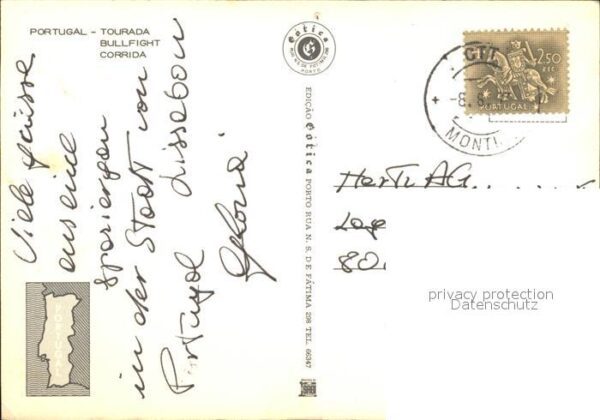 PORTUGAL - TOURADA
BULLFIGHT
CORRIDA
Viele Grüsse
aus eine
spaziergan
in der Stadt von
Portugal Lissabon
Gótica
PORTO
EDIÇÃO Gótica PORTO RUA N. S. DE FÁTIMA 208 TEL. 66247
PORTUGAL
CTT
-8.
MONTI
2$50
PORTUGAL
AG
80
privacy protection
Datenschutz